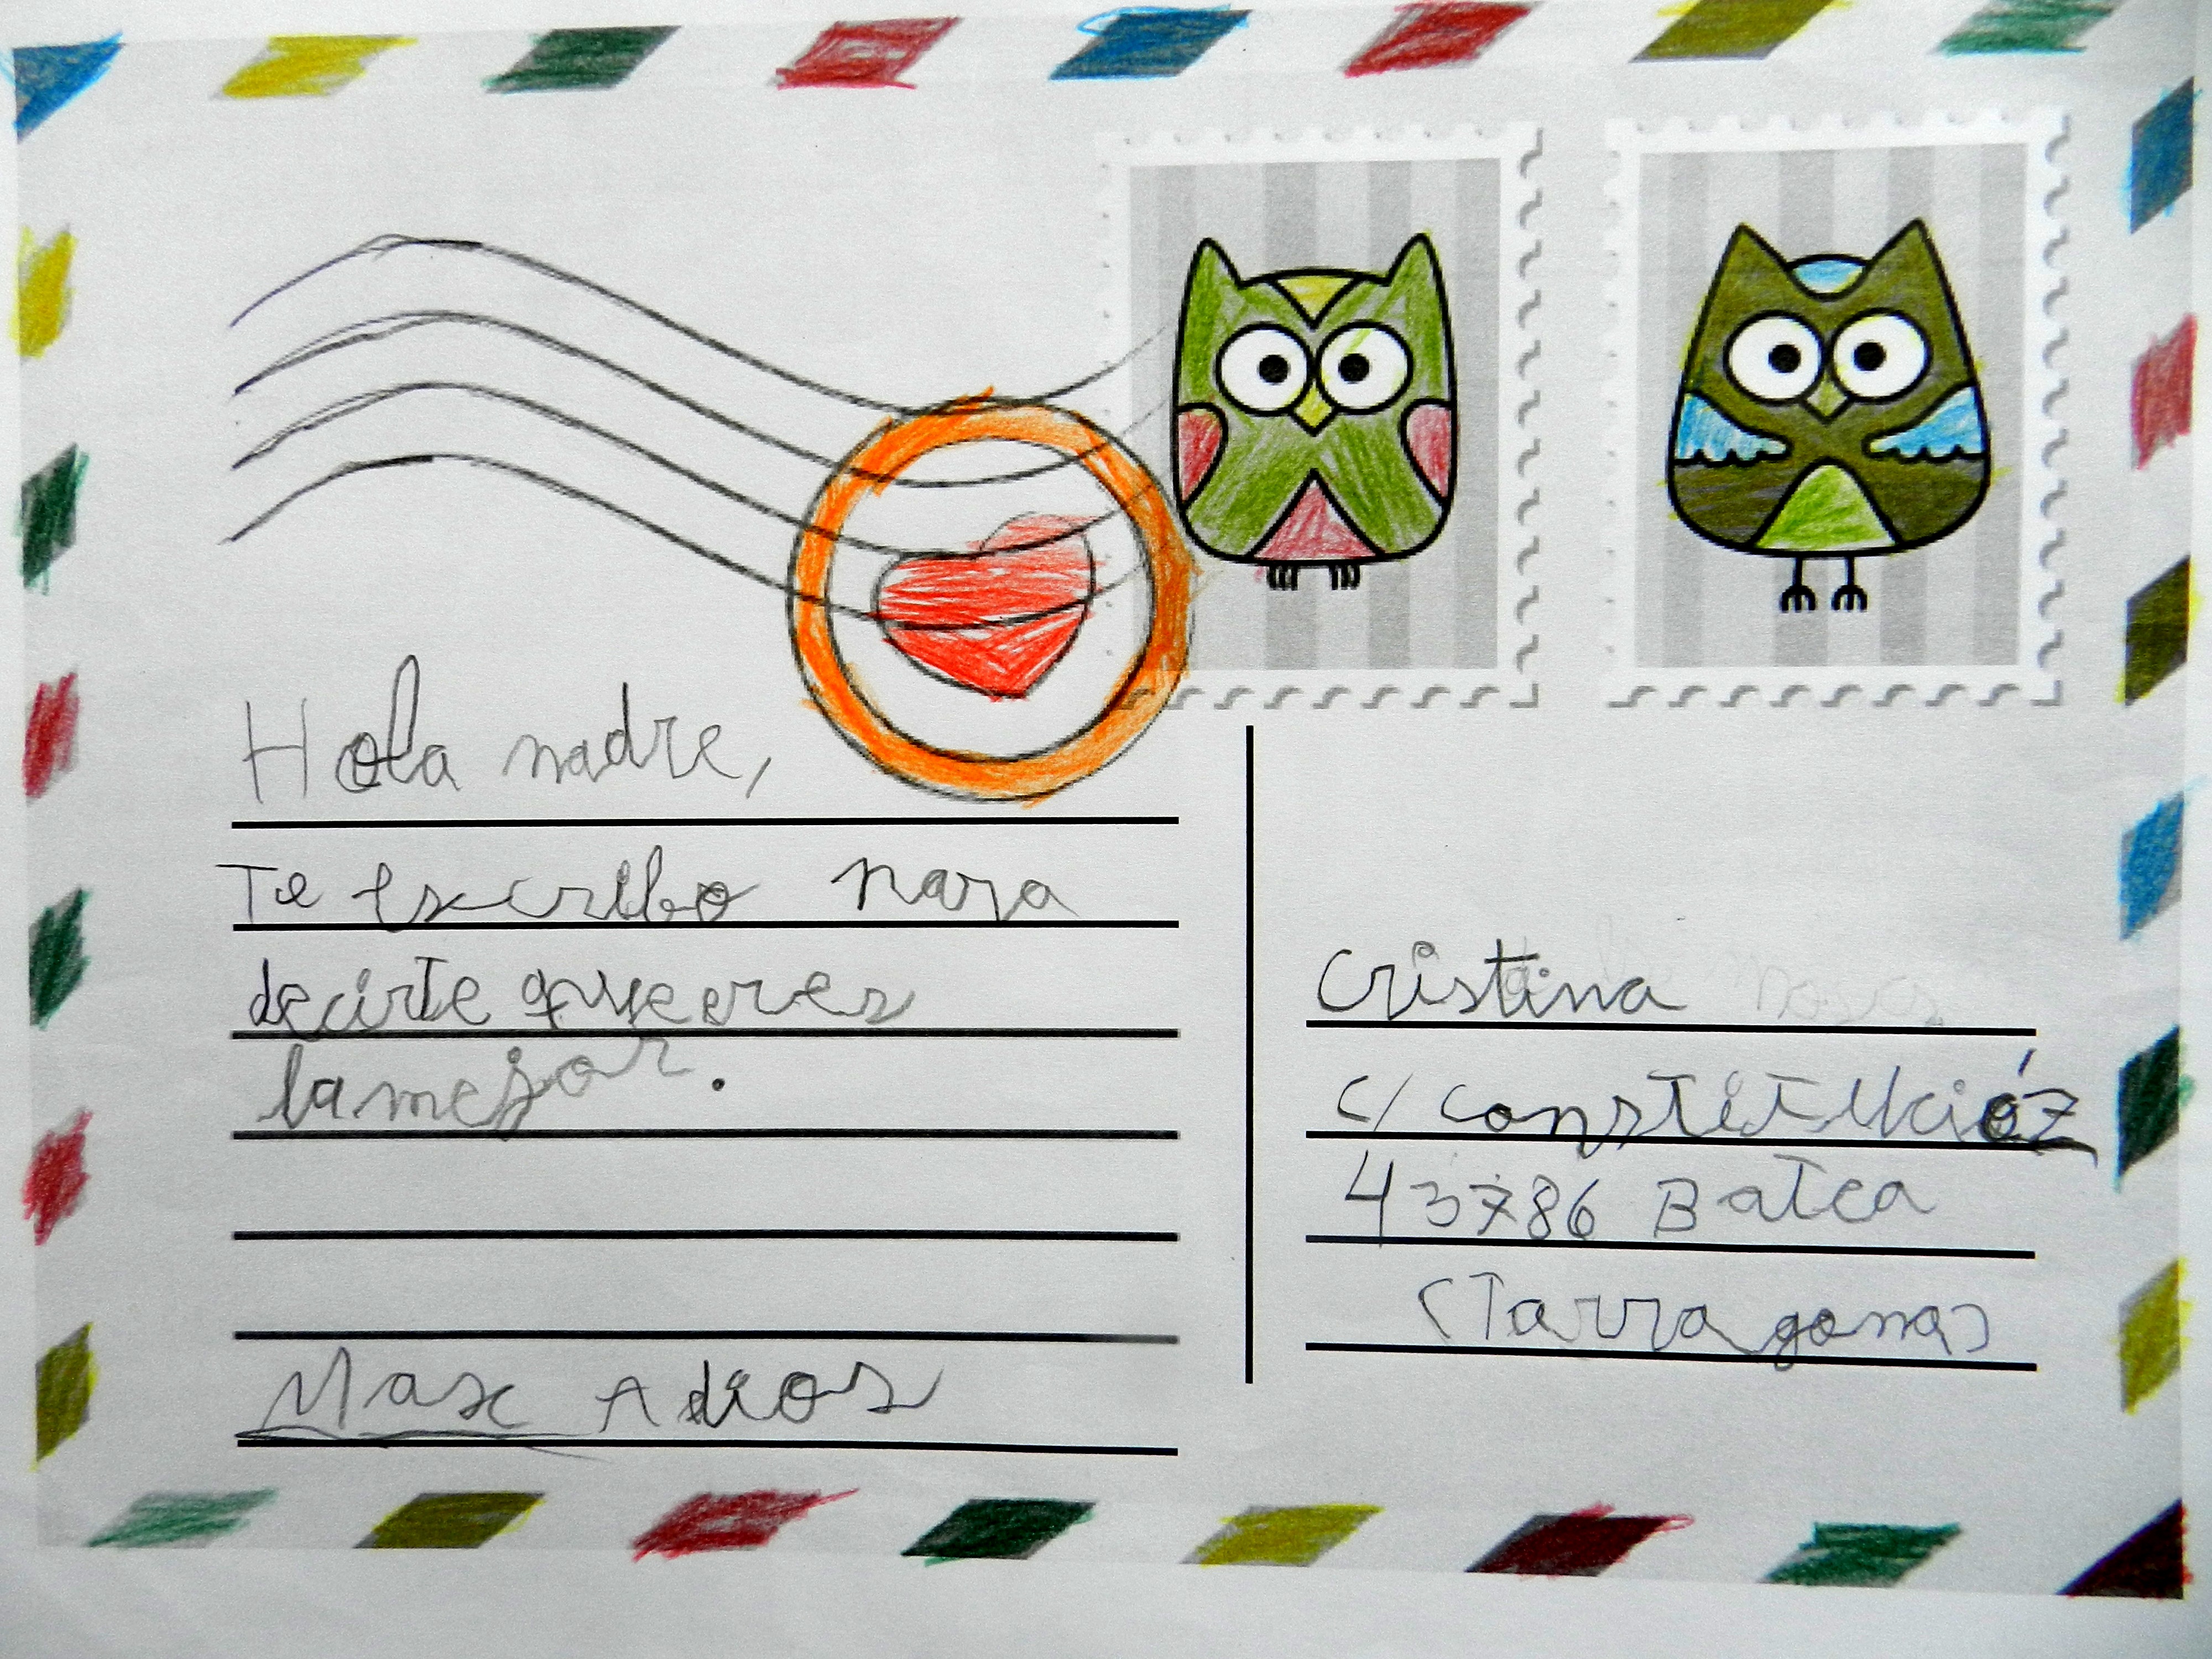 Hola madre,
Te escribo para
decirte que eres
la mejor.
Max Adios
Cristina
c/ constitució 7
43786 Batea
(Tarragona)